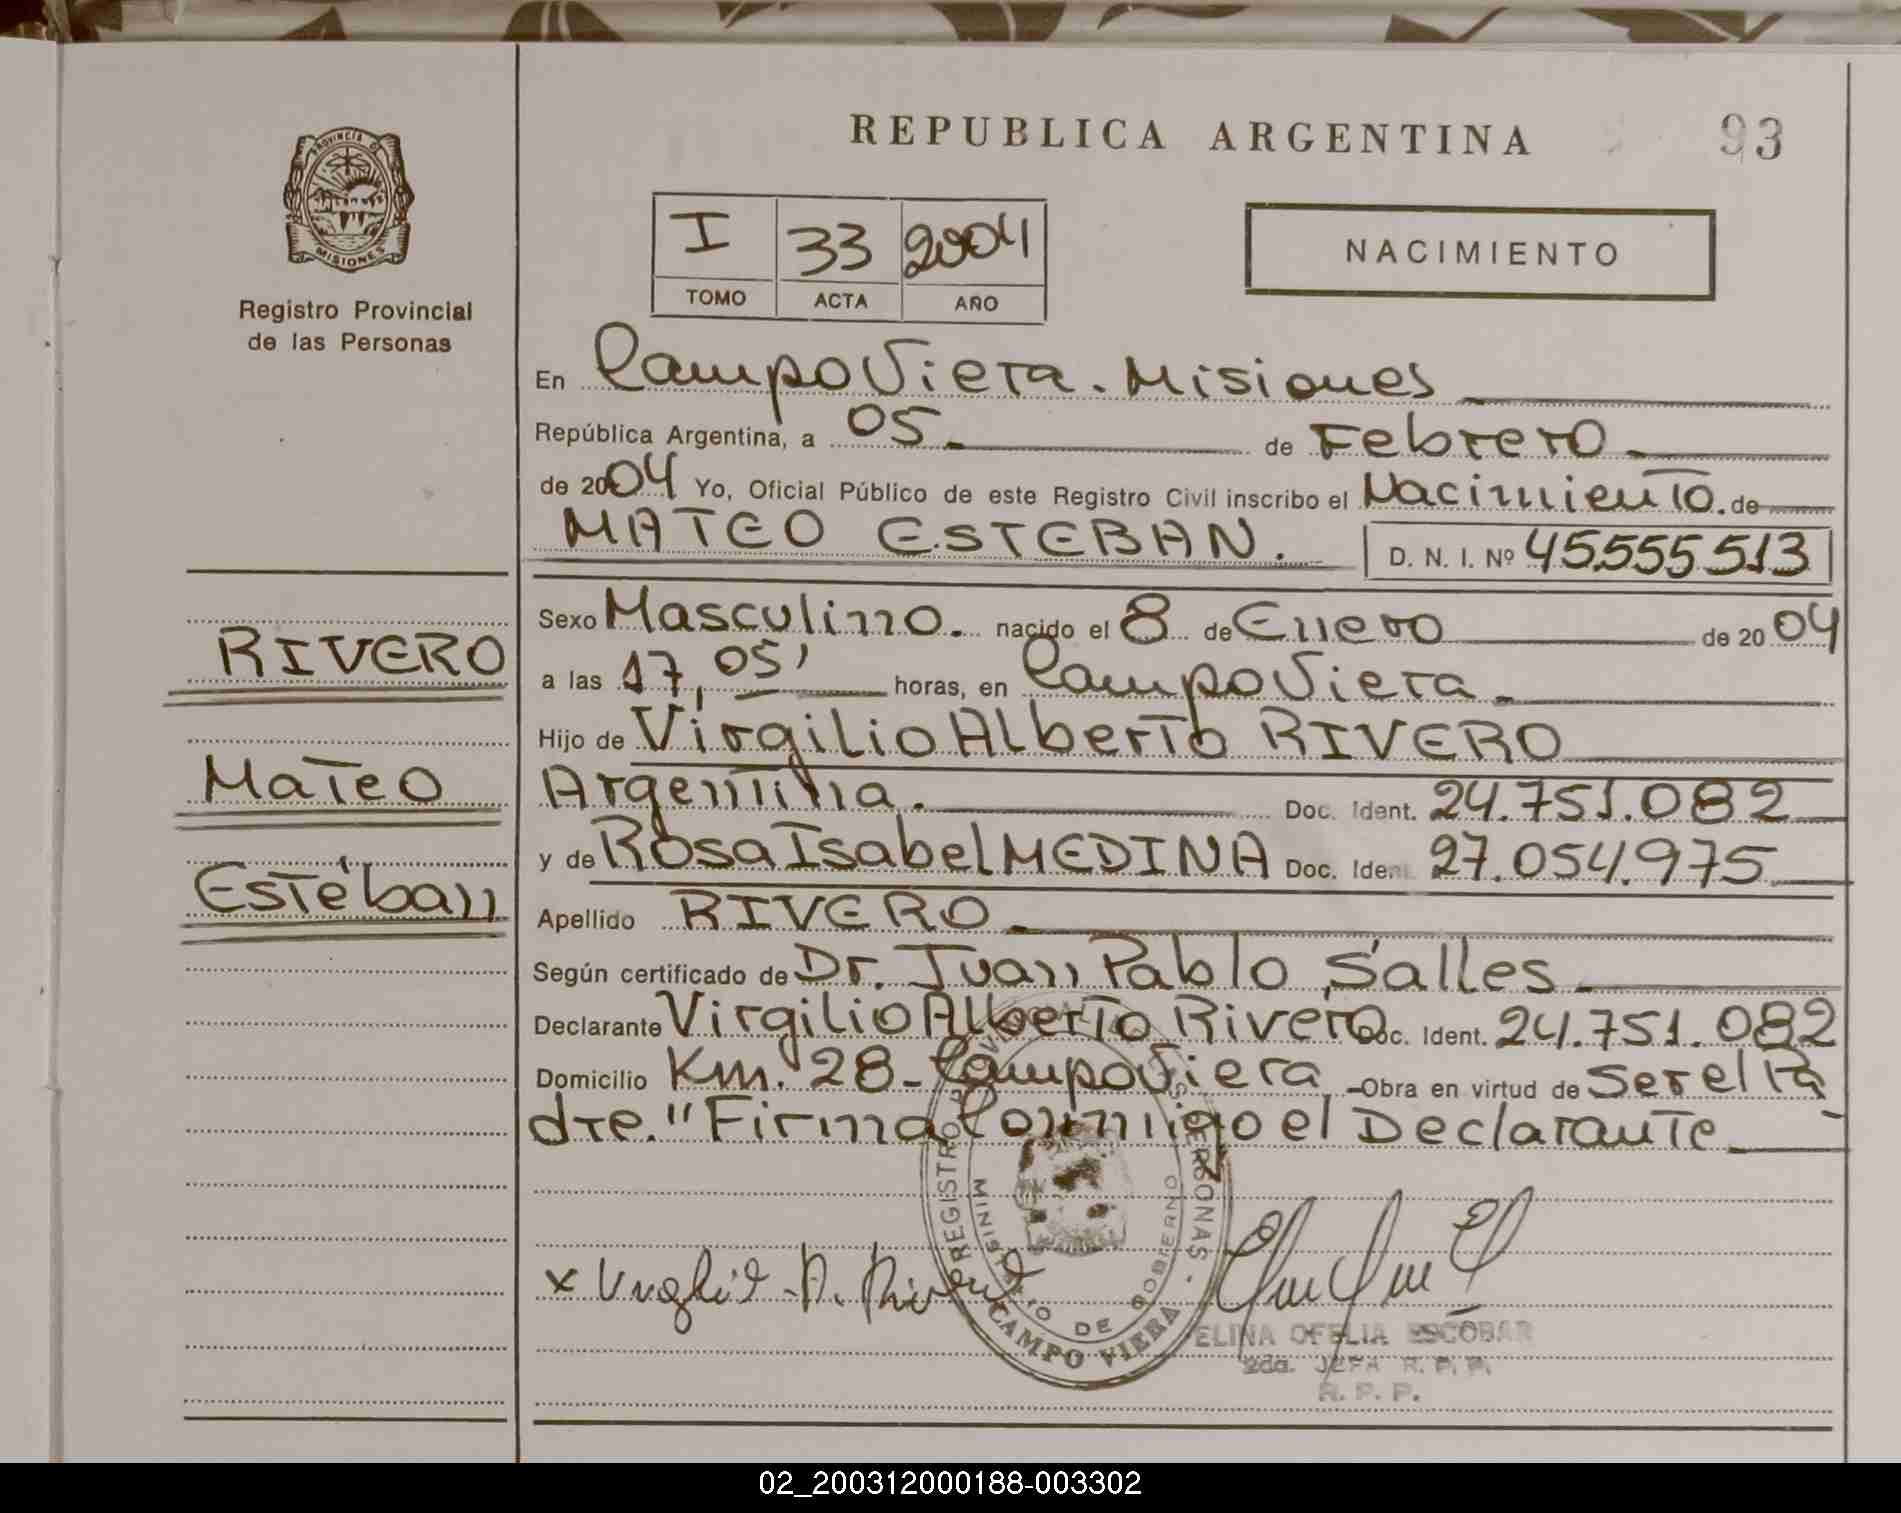 REPUBLICA ARGENTINA
93
PROVINCIA DE
MISIONES
Registro Provincial
de las Personas
I 33 2004
TOMO ACTA AÑO
NACIMIENTO
En Campo Viera. Misiones
República Argentina, a 05 de Febrero
de 2004 Yo, Oficial Público de este Registro Civil inscribo el Nacimiento. de
MATEO ESTEBAN. D. N. I. Nº 45.555.513
Sexo Masculino. nacido el 8 de Enero de 2004
a las 17,05' horas, en Campo Viera
Hijo de Virgilio Alberto RIVERO
Argentina. Doc. Ident. 24.751.082
y de Rosa Isabel MEDINA Doc. Ident. 27.054.975
Apellido RIVERO
Según certificado de Dr. Juan Pablo Salles
Declarante Virgilio Alberto Rivero Doc. Ident. 24.751.082
Domicilio Km. 28 - Campo Viera - Obra en virtud de ser el Pa
dre. "Firma Conmigo el Declarante
RIVERO
Mateo
Esteban
x Virgilio A. Rivero
REGISTRO PERSONAS
MINISTERIO DE GOBIERNO
CAMPO VIERA
ELINA OFELIA ESCOBAR
2da. JEFA R. P. P.
R. P. P.
02_200312000188-003302